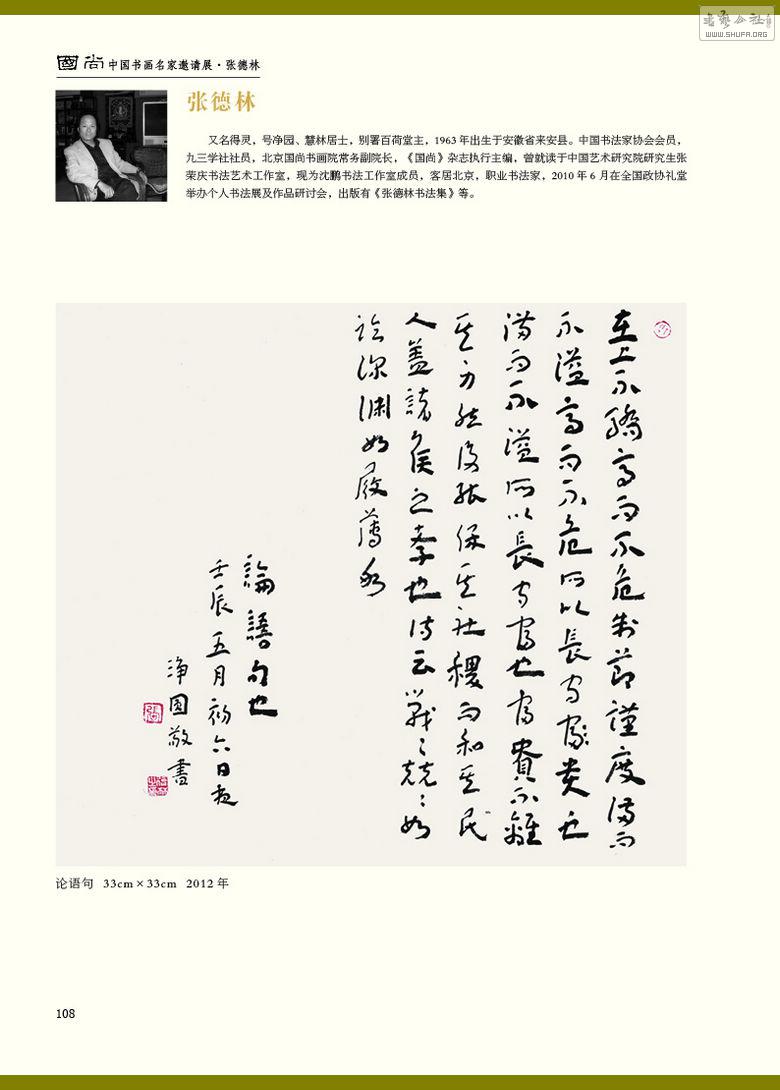 書藝公社
WWW.SHUFA.ORG
國尚 中国书画名家邀请展·张德林
张德林
又名得灵，号净园、慧林居士，别署百荷堂主，1963年出生于安徽省来安县。中国书法家协会会员，
九三学社社员，北京国尚书画院常务副院长，《国尚》杂志执行主编，曾就读于中国艺术研究院研究生张
荣庆书法艺术工作室，现为沈鹏书法工作室成员，客居北京，职业书法家，2010年6月在全国政协礼堂
举办个人书法展及作品研讨会，出版有《张德林书法集》等。
在上不驕高而不危制節謹度滿而
不溢高而不危所以長守家貴也
滿而不溢所以長守富也富貴不離
其身然後能保其社稷而和其民
人蓋諸侯之孝也詩云戰〻兢〻如
臨深淵如履薄冰
論語句也
壬辰五月初六日夜
淨園敬書
论语句 33cm×33cm 2012年
108